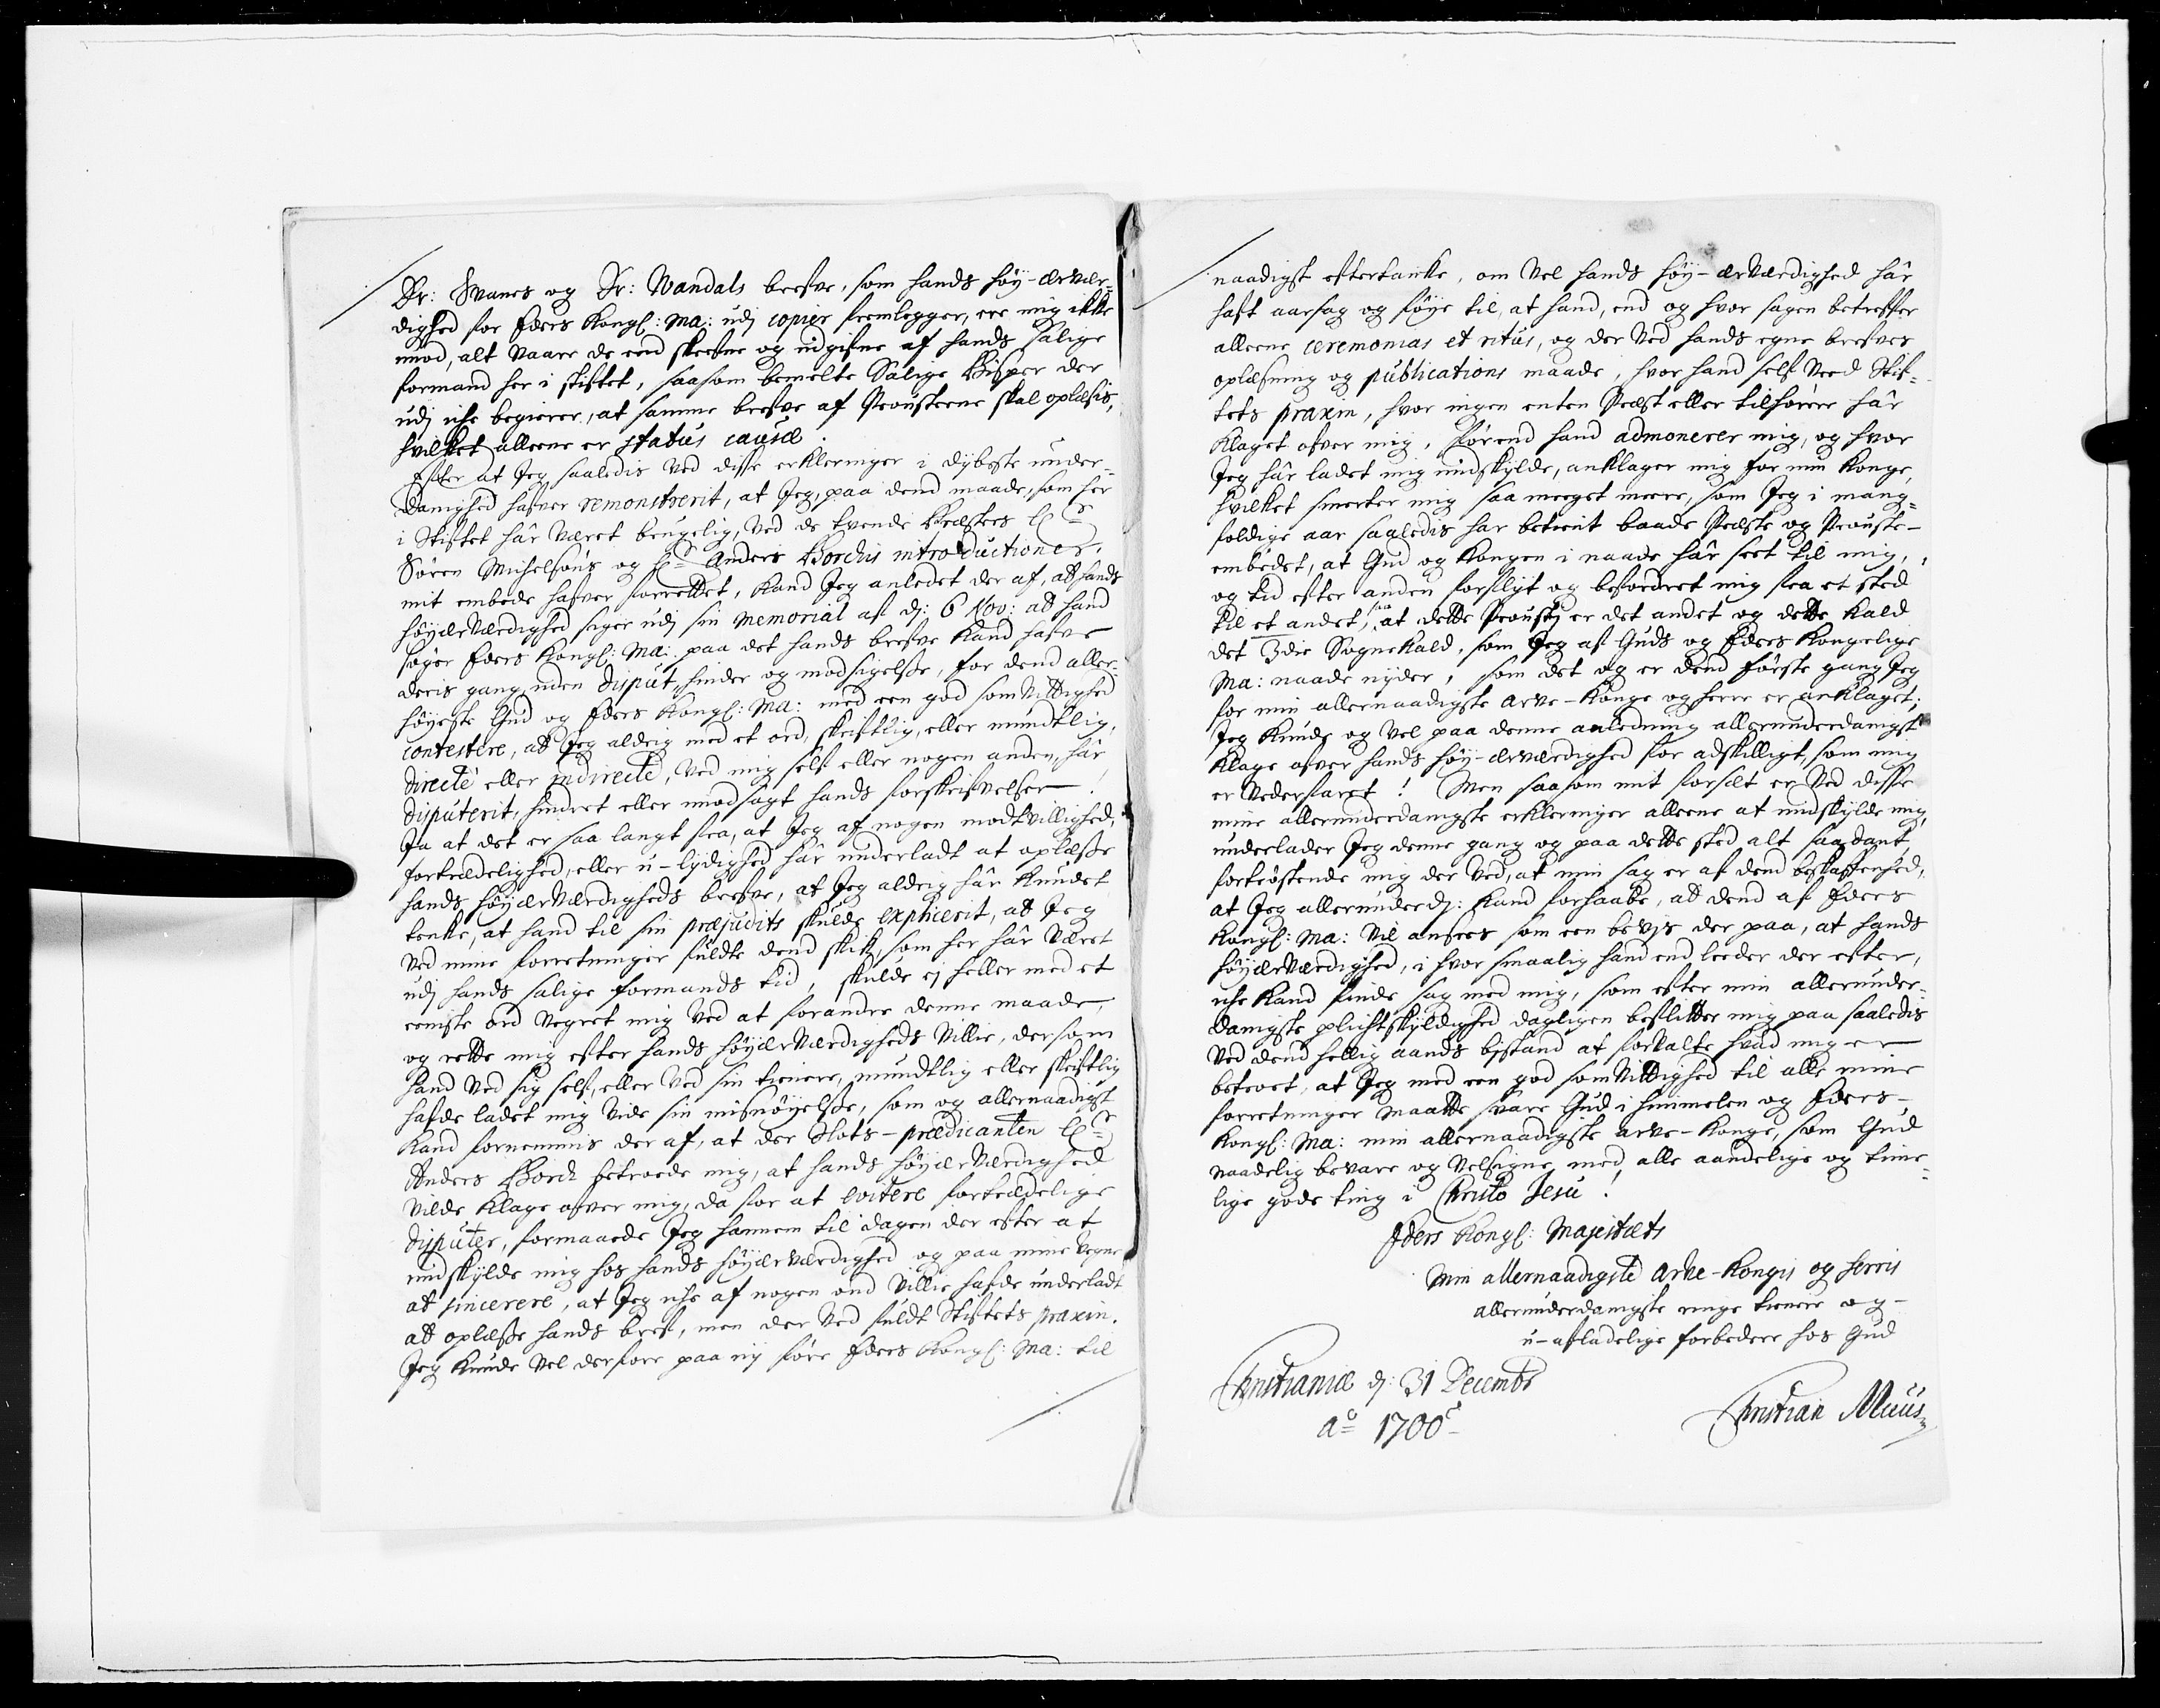 Dr: Svanes og Dr: Wandals brefve, som hands høy-ærvær-
dighed for Eders Kongl: Ma: udj copier fremlegger, ere mig ikke
imod, alt vaare de end skrefne og udgifne af hands Salige
formand her i stiftet, saasom bemelte Salige Bisper der
udj iche begierer, at samme brefve af Provsterne skal oplæsis,
hvilket alleene er status causæ.
Efter at Jeg saaledis ved disse erkleringer i dybeste under-
danighed hafver remonstrerit, at Jeg, paa dend maade, som her
i Stiftet hâr været brugelig, ved de tvende Præsters Hr
Søren Michelsøns og Hr Anders Borchis introductioner,
mit embede hafver forrettet, Kand Jeg anledet der af, att hands
høyærværdighed siger udj sin Memorial af dj: 6 Nov: att hand
søger Eders Kongl: Ma: paa det hands brefve Kand hafve
deris gang, uden disput, hinder og modsigelsse, for dend aller-
høyeste Gud og Eders Kongl: Ma: med een god samvittighed
contestere, att Jeg aldrig med et ord, skriftlig, eller mundtlig,
directè eller indirectè, ved mig self eller nogen anden, hâr
disputerit, hindret eller imodsagt hands forskrifvelser!
Ja at det er saa langt fra, at Jeg af nogen modtvillighed,
fortredelighed, eller u-lydighed hâr underladt at oplæsse
hands høyærværdigheds brefve, at Jeg aldrig hâr Kundet
tenke, at hand til sin præjudits skulde explicerit, att Jeg
ved mine forretninger fuldte dend skik, som her hâr været
udj hands salige formands tid, skulde ej heller med et
eeniste ord vegret mig ved at forandre denne maade,
og rette mig efter hands høyærværdigheds villie, dersom
hand ved sig self, eller ved sin tienere, mundtlig eller skriftlig
hafde ladet mig vide sin misnøyelsse, som og allernaadigst
Kand fornemmis der af, at der Slots-prædicanten Hr
Anders Borch betroede mig, at hands høyærværdighed
vilde Klage ofver mig, da for at evitere fortredelige
disputer, formaaede Jeg hannem til dagen der efter at
undskylde mig hos hands høyærværdighed og paa mine vegne
at sincerere, at Jeg iche af nogen ond villie hafde underladt
att oplæsse hands bref, men der ved fuldt Stiftets praxin.
Jeg Kunde vel derfore paa ny føre Eders Kongl: Ma: til
naadigst eftertanke, om vel hands høy-ærværdighed hâr
haft aarsag og føye til, at hand, end og hvor sagen betreffer
alleene ceremonias et ritus, og der ved hands egne brefves
oplæsning og publications maade, hvor hand self veed Stif-
tets praxin, hvor ingen enten Præst eller tilhørere hâr
Klaget ofver mig, førend hand admonerer mig, og hvor
Jeg hâr ladet mig undskylde, anklager mig for min Konge,
hvilket smerter mig saa meeget meere, som Jeg i mang-
foldige aar saaledis har betient baade Præste og Provste-
embedet, at Gud og Kongen i naade hâr seet til mig,
og tid efter anden forflyt og befordret mig fra et sted
til et andet, saa at dette Provstj er det andet og dette Kald
det 3die Sognekald, som Jeg af Guds og Eders Kongelige
Ma: naade nyder, som det og er dend første gang Jeg
for min allernaadigste Arve-Konge og herre er anklaget;
Jeg Kunde og vel paa denne anledning allerunderdanigst
Klage ofver hands høy-ærværdighed for adskilligt, som mig
er vederfaret! Men saasom mit forsæt er ved disse
mine allerunderdanigste erkleringer alleene at undskylde mig,
underlader Jeg denne gang og paa dette sted alt saadant,
fortrøstende mig der ved, at min sag er af dend beskaffenhed,
at Jeg allerunderdj: Kand forhaabe, att dend af Eders
Kongl: Ma: vil ansees som een bevjs der paa, at hands
høyærværdighed, i hvor smaalig hand end leeder der efter,
iche Kand finde sag med mig, som efter min allerunder-
danigste plichtskyldighed dagligen beflitter mig paa saaledis
ved dend hellig aands bjstand at forvalte hvad mig er
betroet, at Jeg med een god samvittighed til alle mine
forretninger maatte svare Gud i himmelen og Eders
Kongl: Ma: min allernaadigste arve-Konge, som Gud
naadelig bevare og velsigne med alle aandelige og time-
lige gode ting i Christo Jesu!
Eders Kongl: Majestæts
Min allernaadigste Arve-Kongis og herris
allerunderdanigste ringe tienere og
u-afladelige forbedere hos Gud
Christianiæ dj: 31 Decembr
Ao 1700
Christian Muus